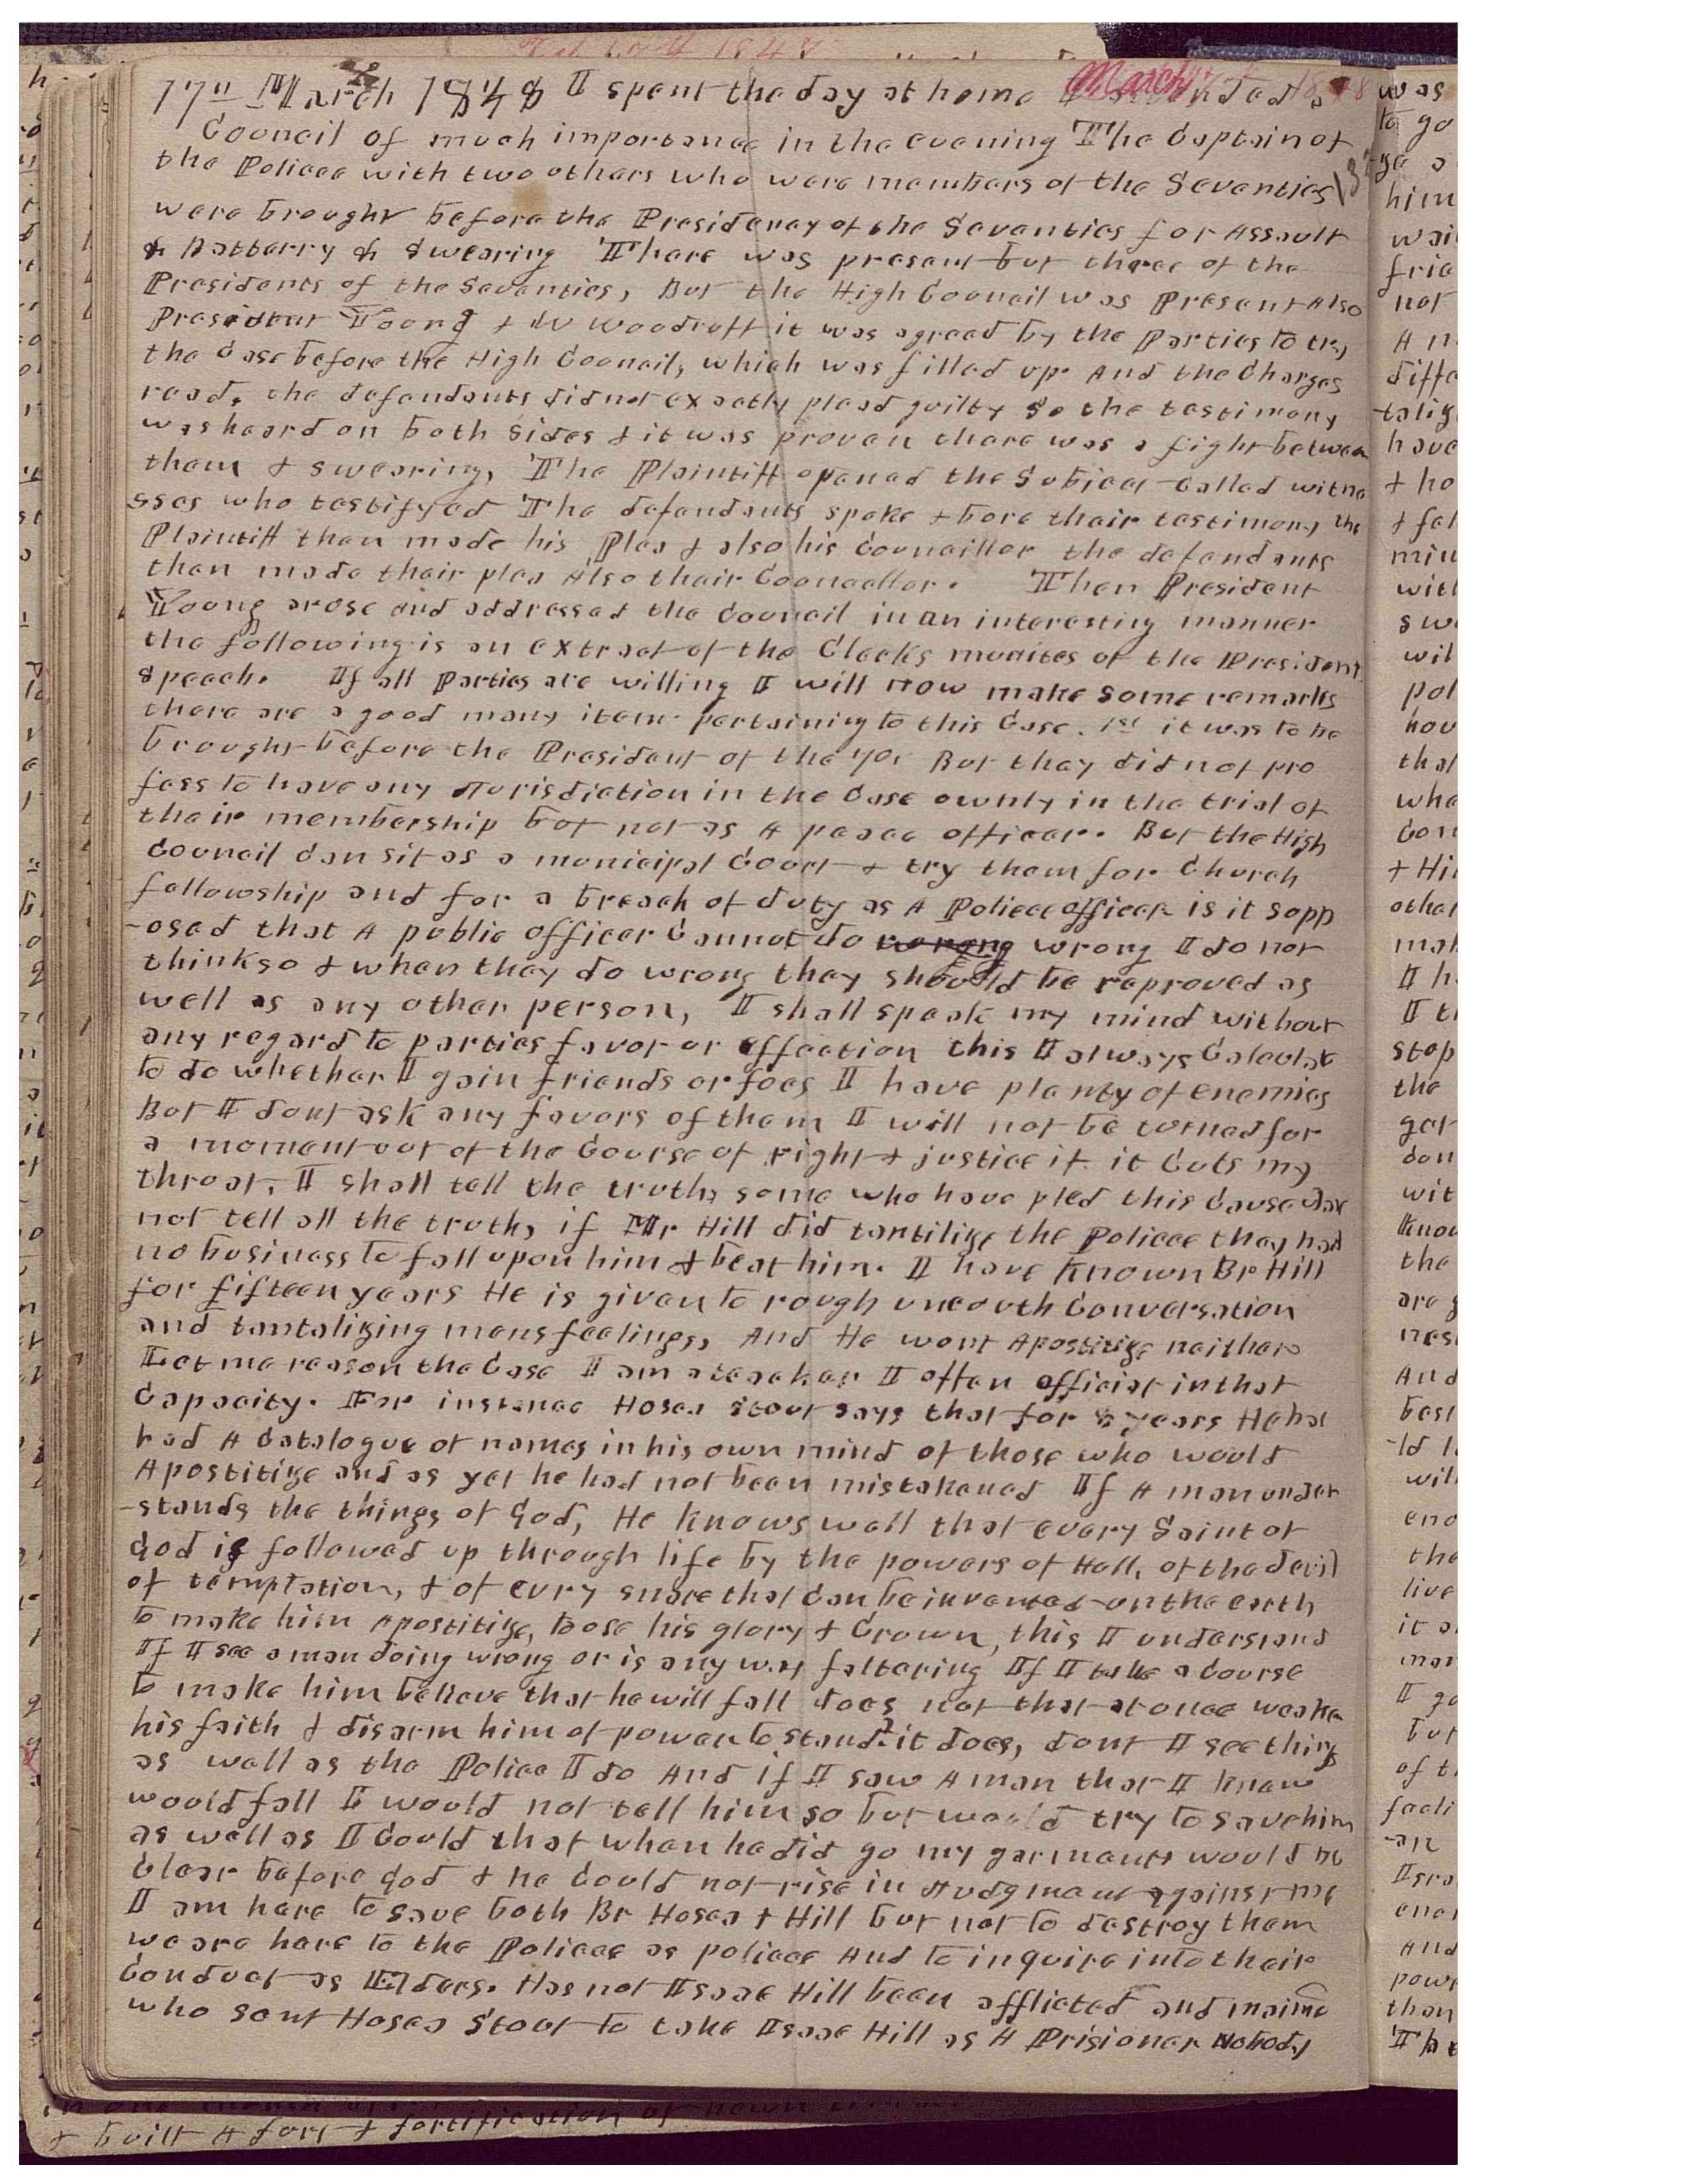 17th March 1848 I spent the day at home I attended a
March 17th 1848
Council of much importance in the evening The Captain of
the Policee with two others who were members of the Seventies
were brought before the Presidency of the Seventies for Assault
& Batterry & Swearing There was present but three of the
Presidents of the Seventies, But the High Council was Present Also
President Young & W Woodruff it was agreed by the Parties to try
the Case before the High Council, which was filled up And the Charges
read, the defendants did not exactly plead guilty so the testimony
was heard on both Sides & it was proven there was a fight between
them & swearing, The Plaintiff opened the Subject Called witne
sses who testifyed The defendants spoke & bore their testimony the
Plaintiff then made his Plea & also his Councillor the defendants
then made their plea Also their Councellor. Then President
Young arose and addressed the Council in an interesting manner
the following is an extract of the Clecks monites of the Presidents
speech. If all Parties are willing I will now make some remarks
there are a good many item pertaining to this Case. 1st it was to be
brought before the President of the 70s But they did not pro
fess to have any Jurisdiction in the Case ownly in the trial of
their membership but not as A peace officer. But the High
Council Can sit as a municipal Court & try them for Church
fellowship and for a breach of duty as A Policee officer is it supp
-osed that A public officer Cannot do wrong wrong I do not
think so & when they do wrong they should be reproved as
well as any other person, I shall speak my mind without
any regard to parties favor or effection this I always Calculate
to do whether I gain friends or foes I have plenty of enemies
But I dont ask any favors of them I will not be turned for
a moment out of the Course of right & justice if it Cuts my
throat, I shall tell the truth, some who have pled this Cause dare
not tell all the truth, if Mr Hill did tantilize the Policee they had
no business to fall upon him & beat him. I have known Br Hill
for fifteen years He is given to rough uncouth Conversation
and tantalizing mens feelings, And He wont Apostitize neither
Let me reason the Case I am a teacher I often officiat in that
Capacity. For instance Hosea Stout says that for 5 years He has
had A Catalogue of names in his own mind of those who would
Apostitize and as yet he had not been mistakened If A man under
-stands the things of God, He knows well that every Saint of
God is followed up through life by the powers of Hell, of the devil
of temptation, & of evry snare that Can be invented on the earth
to make him Apostitize, loose his glory & Crown, this I understand
If I see a man doing wrong or is any way faltering If I take a Course
to make him believe that he will fall does not that at once weaken
his faith & disarm him of power to stand? it does, dont I see things
as well as the Police I do And if I saw A man that I knew
would fall I would not tell him so but would try to save him
as well as I Could that when he did go my garments would be
Clear before God & he Could not rise in Judgment against me
I am here to save both Br Hosea & Hill but not to destroy them
we are here to the Policee as policee And to inquire into their
Conduct as Elders. Has not Isaac Hill been afflicted and maimed
who sent Hosea Stout to take Isaac Hill as A Prisioner Nobody
& built A fort & fortification of